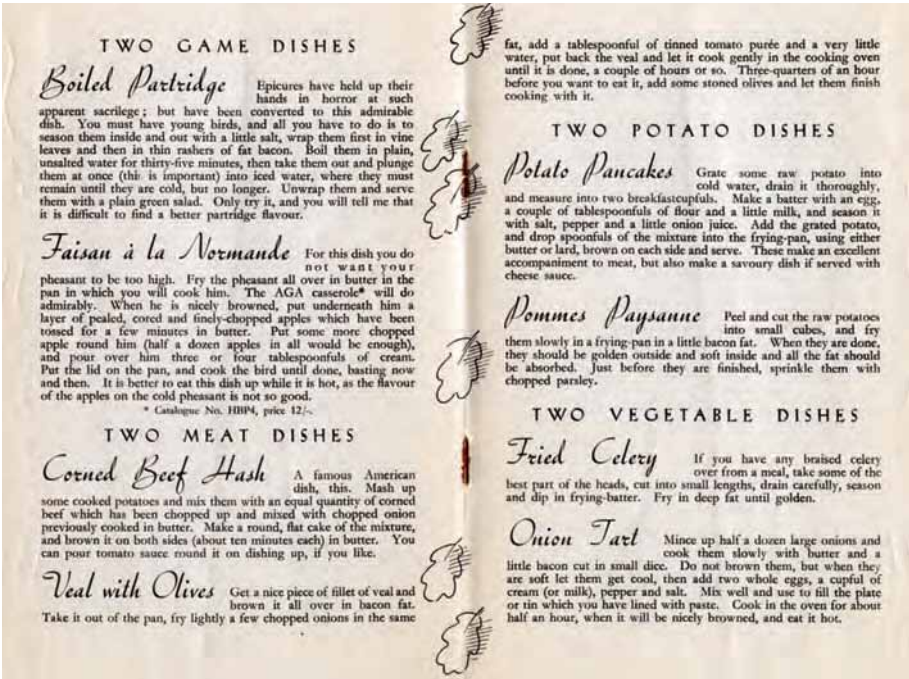 TWO GAME DISHES
Boiled Partridge Epicures have held up their
hands in horror at such
apparent sacrilege; but have been converted to this admirable
dish. You must have young birds, and all you have to do is to
season them inside and out with a little salt, wrap them first in vine
leaves and then in thin rashers of fat bacon. Boil them in plain,
unsalted water for thirty-five minutes, then take them out and plunge
them at once (this is important) into iced water, where they must
remain until they are cold, but no longer. Unwrap them and serve
them with a plain green salad. Only try it, and you will tell me that
it is difficult to find a better partridge flavour.
Faisan à la Normande For this dish you do
not want your
pheasant to be too high. Fry the pheasant all over in butter in the
pan in which you will cook him. The AGA casserole* will do
admirably. When he is nicely browned, put underneath him a
layer of pealed, cored and finely-chopped apples which have been
tossed for a few minutes in butter. Put some more chopped
apple round him (half a dozen apples in all would be enough),
and pour over him three or four tablespoonfuls of cream.
Put the lid on the pan, and cook the bird until done, basting now
and then. It is better to eat this dish up while it is hot, as the flavour
of the apples on the cold pheasant is not so good.
* Catalogue No. HBP4, price 12/-.
TWO MEAT DISHES
Corned Beef Hash A famous American
dish, this. Mash up
some cooked potatoes and mix them with an equal quantity of corned
beef which has been chopped up and mixed with chopped onion
previously cooked in butter. Make a round, flat cake of the mixture,
and brown it on both sides (about ten minutes each) in butter. You
can pour tomato sauce round it on dishing up, if you like.
Veal with Olives Get a nice piece of fillet of veal and
brown it all over in bacon fat.
Take it out of the pan, fry lightly a few chopped onions in the same
fat, add a tablespoonful of tinned tomato purée and a very little
water, put back the veal and let it cook gently in the cooking oven
until it is done, a couple of hours or so. Three-quarters of an hour
before you want to eat it, add some stoned olives and let them finish
cooking with it.
TWO POTATO DISHES
Potato Pancakes Grate some raw potato into
cold water, drain it thoroughly,
and measure into two breakfastcupfuls. Make a batter with an egg,
a couple of tablespoonfuls of flour and a little milk, and season it
with salt, pepper and a little onion juice. Add the grated potato,
and drop spoonfuls of the mixture into the frying-pan, using either
butter or lard, brown on each side and serve. These make an excellent
accompaniment to meat, but also make a savoury dish if served with
cheese sauce.
Pommes Paysanne Peel and cut the raw potatoes
into small cubes, and fry
them slowly in a frying-pan in a little bacon fat. When they are done,
they should be golden outside and soft inside and all the fat should
be absorbed. Just before they are finished, sprinkle them with
chopped parsley.
TWO VEGETABLE DISHES
Fried Celery If you have any braised celery
over from a meal, take some of the
best part of the heads, cut into small lengths, drain carefully, season
and dip in frying-batter. Fry in deep fat until golden.
Onion Tart Mince up half a dozen large onions and
cook them slowly with butter and a
little bacon cut in small dice. Do not brown them, but when they
are soft let them get cool, then add two whole eggs, a cupful of
cream (or milk), pepper and salt. Mix well and use to fill the plate
or tin which you have lined with paste. Cook in the oven for about
half an hour, when it will be nicely browned, and eat it hot.